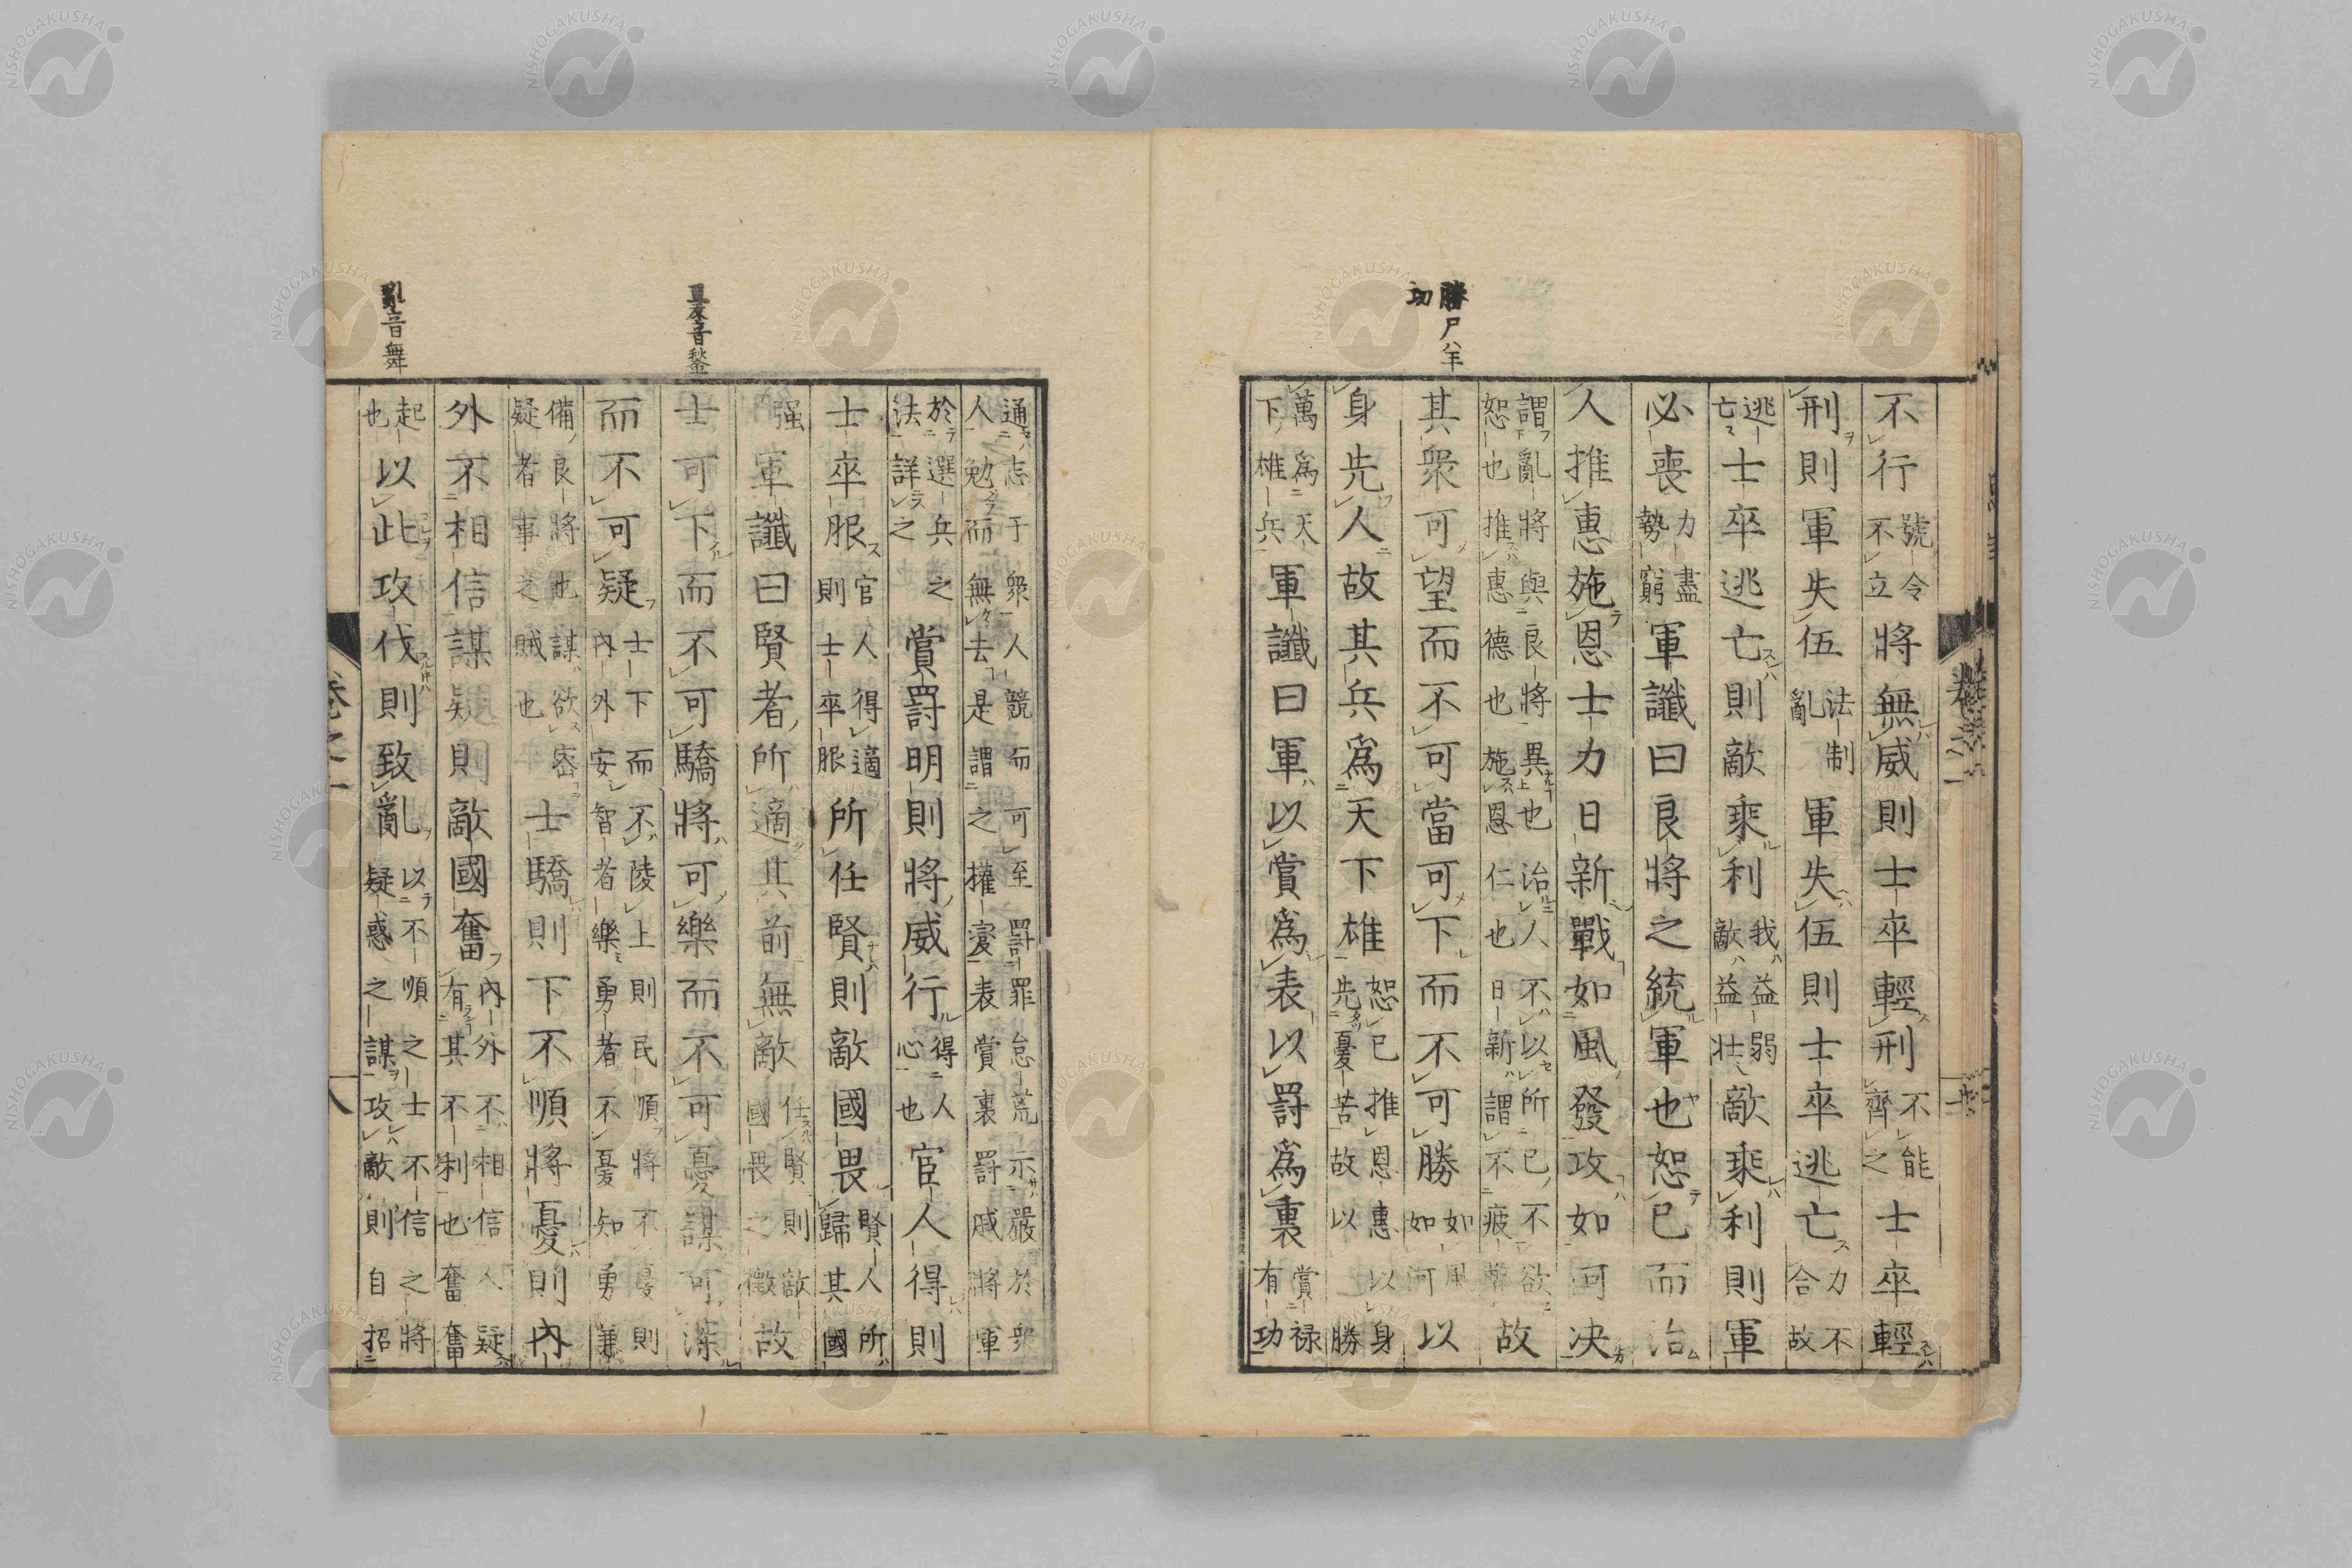 不行號令不立將無威則士卒輕刑不能齊之士卒輕
刑則軍失伍法制亂軍失伍則士卒逃亡力不合故
逃亡士卒逃亡則敵乘利我益弱敵益壯敵乘利則軍
必喪力盡勢窮軍讖曰良將之統軍也恕已而治
人推惠施恩士力日新戰如風發攻如河決
謂亂將與良將異也治人不以所已不欲
恕也推惠德也施恩仁也日新謂不疲弊故
其衆可望而不可當可下而不可勝如風如河以
身先人故其兵爲天下雄恕已推恩惠以身先憂苦故以勝
萬爲天下雄兵軍讖曰軍以賞爲表以罰爲裏賞禄有功
通志于衆人競而可至罰罪怠荒示嚴於衆
人勉而無去是謂之權變表賞裏罰戚將軍
於選兵之法詳之賞罰明則將威行得人心也官人得則
士卒服官人得適則士卒服所任賢則敵國畏賢人所歸其國
强軍讖曰賢者所適其前無敵任賢則敵國畏之徵故
士可下而不可驕將可樂而不可憂謀可深
而不可疑士下而不陵上則民順將不憂則內外安智者樂勇者不憂知勇兼
備良將也謀欲密疑者事之賊也士驕則下不順將憂則內
外不相信謀疑則敵國奮內外不相信人疑有其不利也奮奮
起也以此攻伐則致亂以不順之士不信之將疑惑之謀攻敵則自招